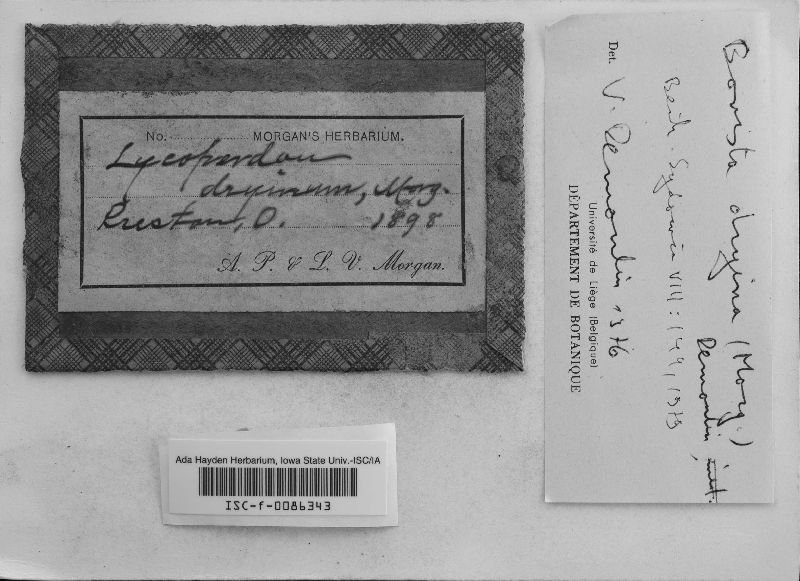 No. MORGAN'S HERBARIUM.
Lycoperdon
dryinum, Morg.
Preston, O. 1898
A. P. & L. V. Morgan.
Ada Hayden Herbarium, Iowa State Univ.-ISC/IA
ISC-f-0086343
Bovista dryina (Morg.)
Demoulin, inet.
Beih. Sydowia VIII: 144, 1979
Det. V. Demoulin 1976
Université de Liège (Belgique)
DÉPARTEMENT DE BOTANIQUE